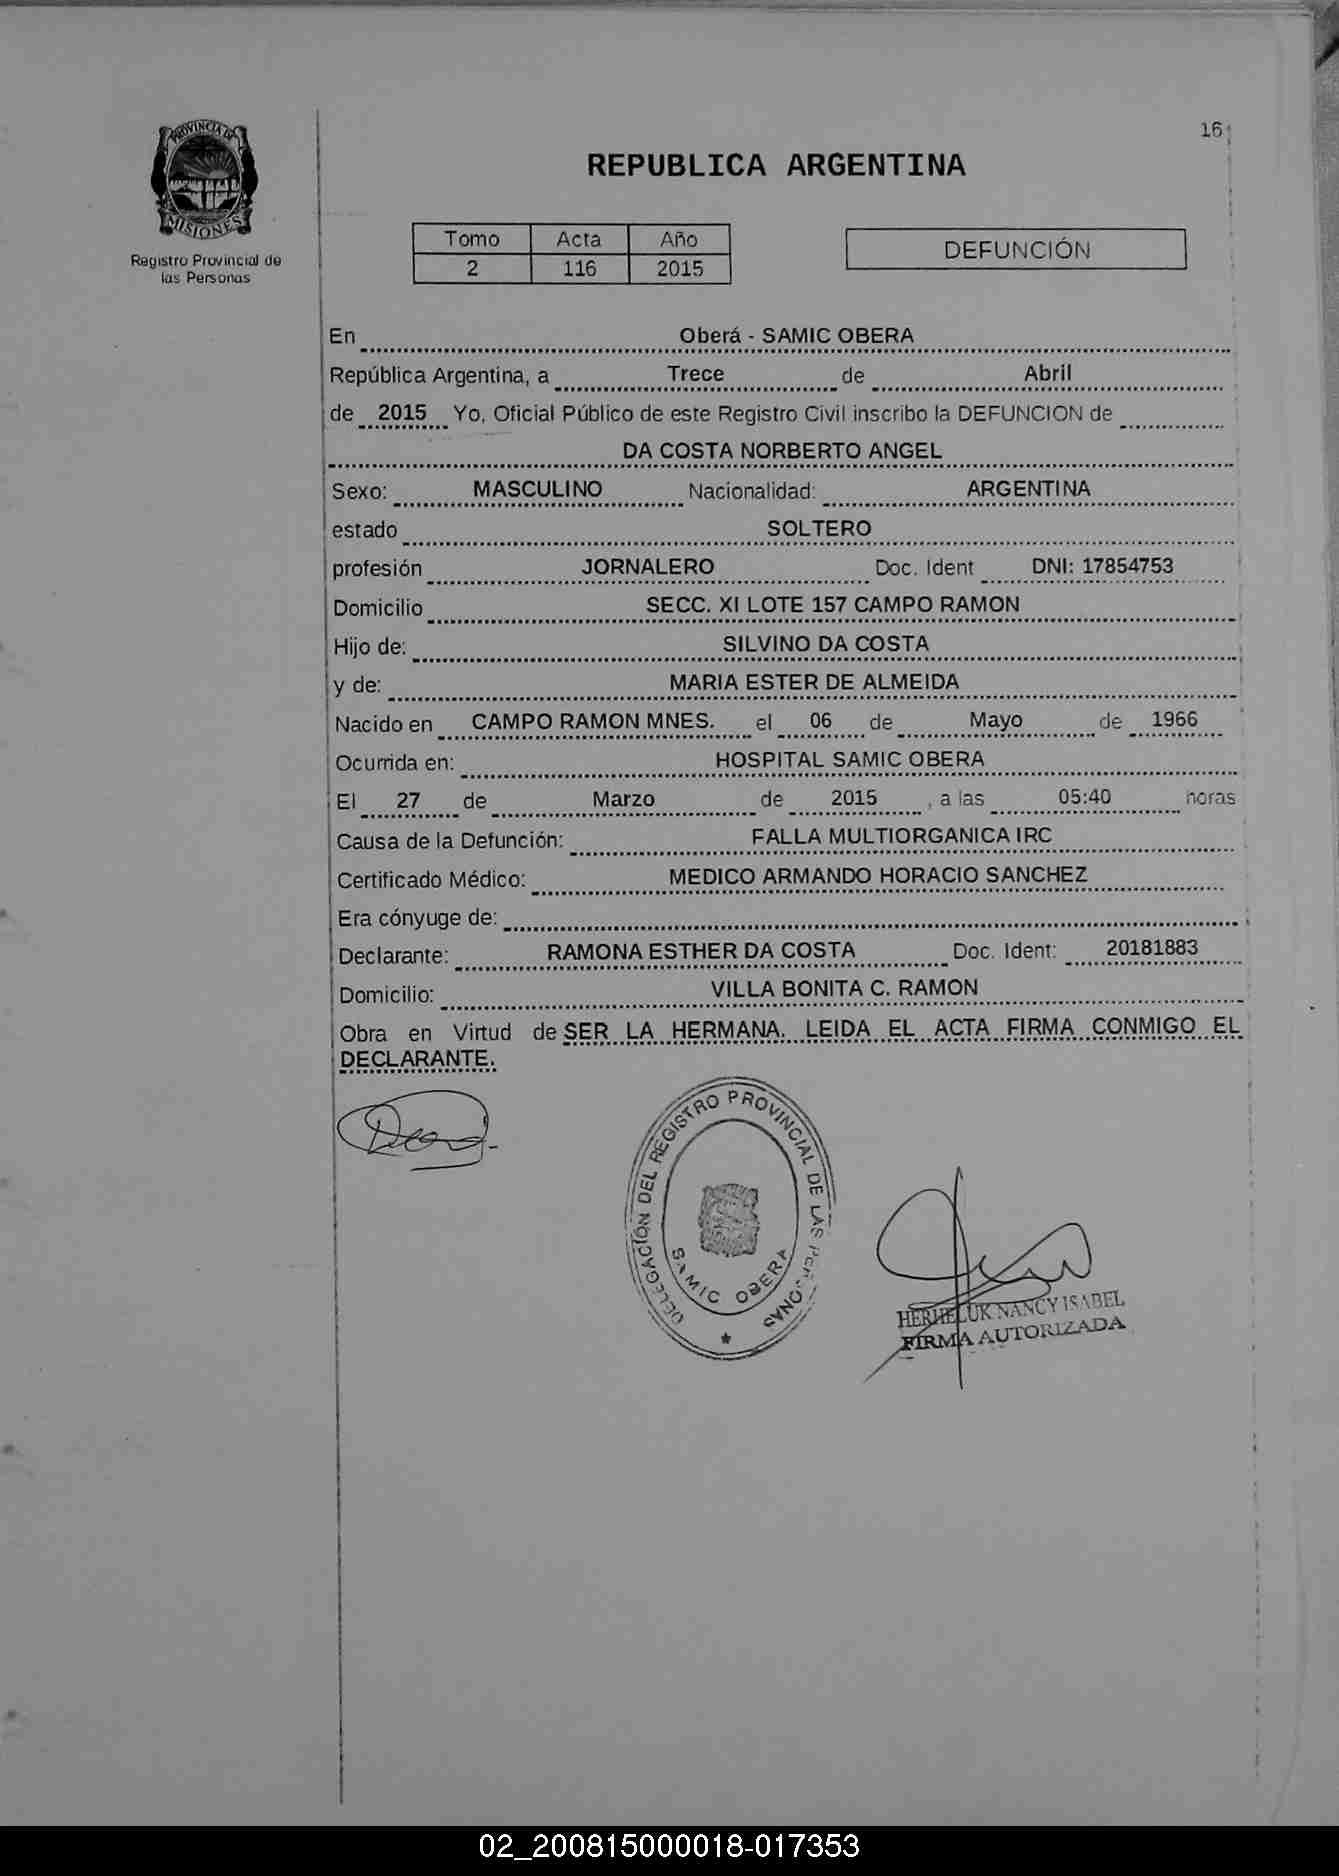 16
PROVINCIA DE
MISIONES
Registro Provincial de
las Personas
REPUBLICA ARGENTINA
Tomo Acta Año
2 116 2015
DEFUNCIÓN
En Oberá - SAMIC OBERA
República Argentina, a Trece de Abril
de 2015 Yo, Oficial Público de este Registro Civil inscribo la DEFUNCION de
DA COSTA NORBERTO ANGEL
Sexo: MASCULINO Nacionalidad: ARGENTINA
estado SOLTERO
profesión JORNALERO Doc. Ident DNI: 17854753
Domicilio SECC. XI LOTE 157 CAMPO RAMON
Hijo de: SILVINO DA COSTA
y de: MARIA ESTER DE ALMEIDA
Nacido en CAMPO RAMON MNES. el 06 de Mayo de 1966
Ocurrida en: HOSPITAL SAMIC OBERA
El 27 de Marzo de 2015 , a las 05:40 horas
Causa de la Defunción: FALLA MULTIORGANICA IRC
Certificado Médico: MEDICO ARMANDO HORACIO SANCHEZ
Era cónyuge de:
Declarante: RAMONA ESTHER DA COSTA Doc. Ident: 20181883
Domicilio: VILLA BONITA C. RAMON
Obra en Virtud de SER LA HERMANA. LEIDA EL ACTA FIRMA CONMIGO EL
DECLARANTE.
DELEGACIÓN DEL REGISTRO PROVINCIAL DE LAS PERSONAS
SAMIC OBERA
HERHELUK NANCY ISABEL
FIRMA AUTORIZADA
02_200815000018-017353